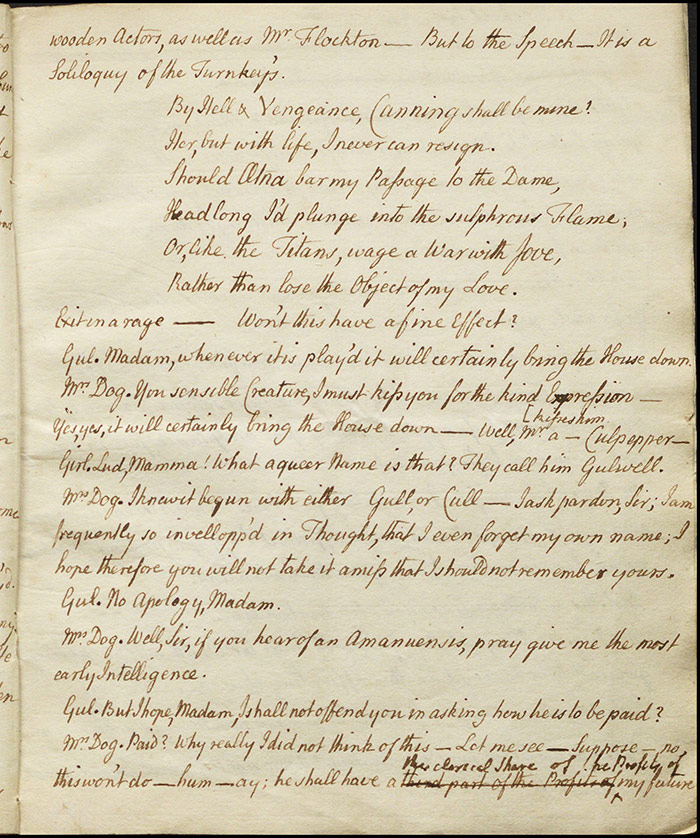 wooden Actors, as well as Mr. Flockton — But to the Speech — It is a
Soliloquy of the Turnkey's.
By Hell & Vengeance, Canning shall be mine!
Her, but with life, I never can resign.
Should Ætna bar my Passage to the Dame,
Headlong I'd plunge into the sulphrous Flame;
Or, like the Titans, wage a War with Jove,
Rather than lose the Object of my Love.
Exit in a rage — Won't this have a fine Effect?
Gul. Madam, whenever it is play'd it will certainly bring the House down.
Mrs. Dog. You sensible Creature, I must kiss you for the kind Expression —
[kisses him
Yes, yes, it will certainly bring the House down — Well, Mr. a — Culpepper —
Girl. Lud, Mamma! What a queer Name is that? They call him Gulwell.
Mrs. Dog. I knew it begun with either Gull, or Cull — I ask pardon, Sir; I am
frequently so invellopp'd in Thought, that I even forget my own name; I
hope therefore you will not take it amiss that I should not remember yours.
Gul. No Apology, Madam.
Mrs. Dog. Well, Sir, if you hear of an Amanuensis, pray give me the most
early Intelligence.
Gul. But I hope, Madam, I shall not offend you in asking how he is to be paid?
Mrs. Dog. Paid? Why really I did not think of this — Let me see — Suppose — no,
clerical Share of the Profits of
this won't do — hum — ay; he shall have a third part of the Profits of my future